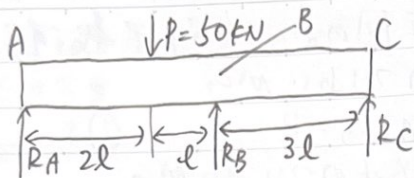 A P=50KN B C
RA 2l l RB 3l RC